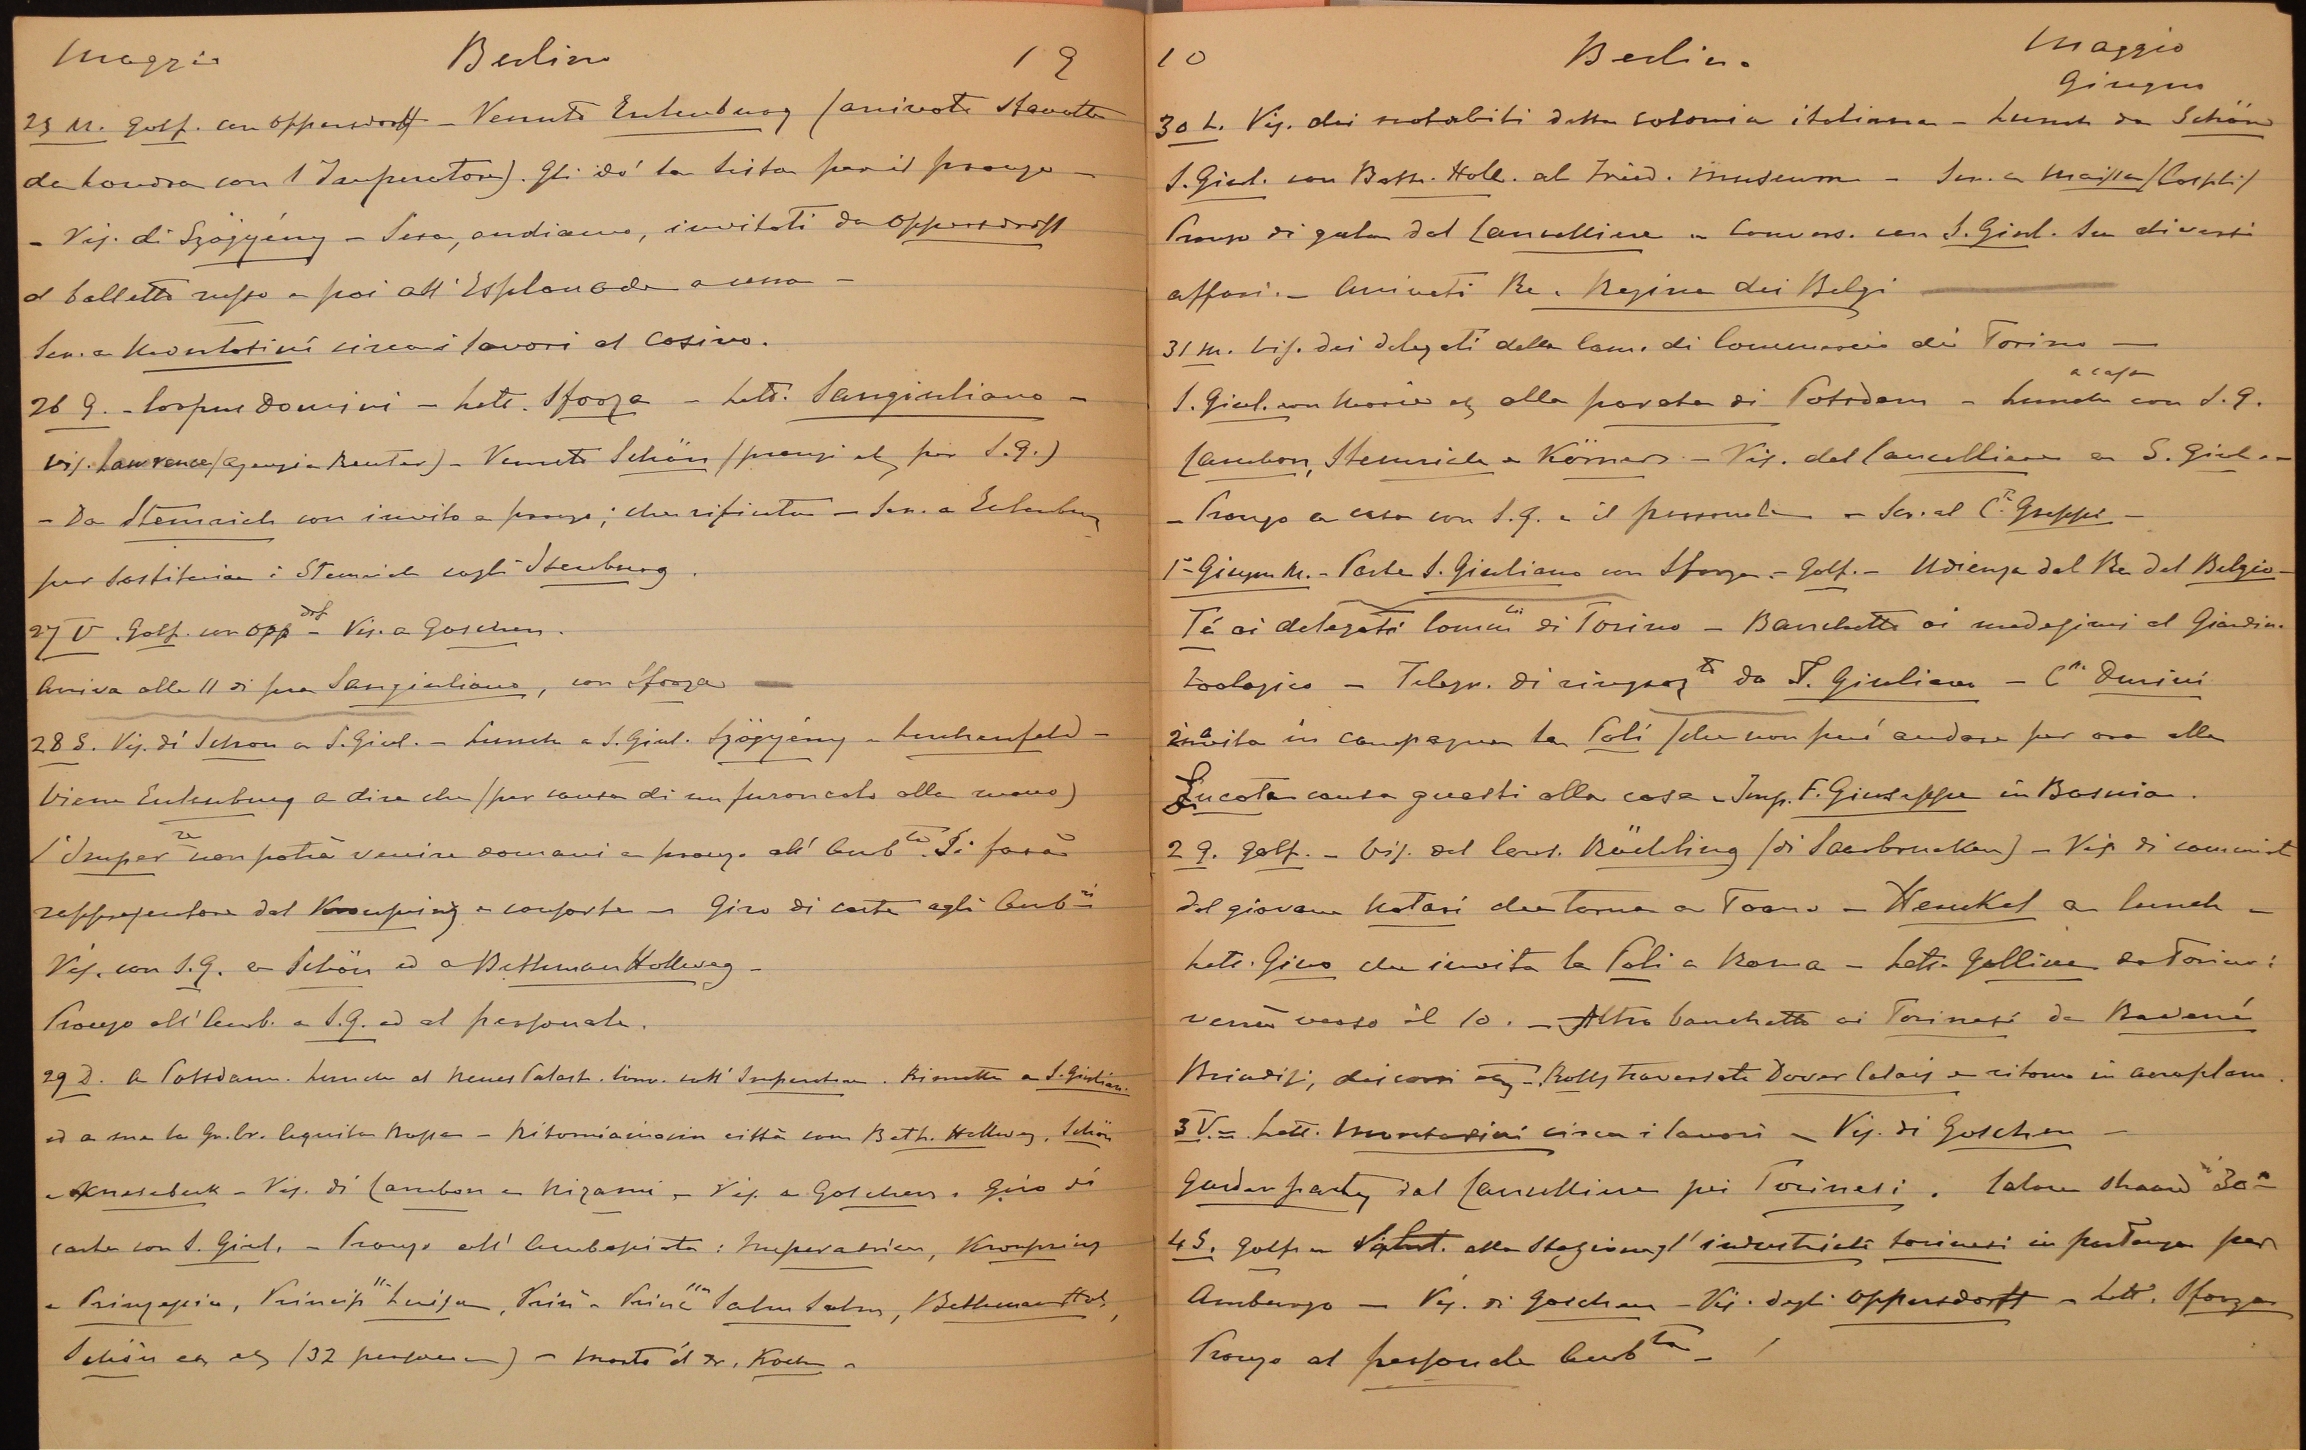 Maggio Berlino 19
25 M. Golf. con Oppersdorff – Venuto Eulenburg (arrivato stanotte
da Londra con l'Imperatore). Gli dò la lista per il pranzo –
– Vis. di Szögyény – Sera, andiamo, invitati da Oppersdorff
al balletto russo e poi all'Esplanade a cena –
Scr. a Montosini circa i lavori al Casino.
26 G. – Corpus Domini – Lett. Sforza – Lett. Sangiuliano –
Vis. Lawrence (agenzia Reuter) – Venuto Schön (pranzi etc per S.G.)
– Da Stemrich con invito a pranzo; che rifiuta – Scr. a Eulenburg
per sostituire i Stemrich cogli Isenburg.
27 V. Golf. con Opp dorf – Vis. a Goschen.
Arriva alle 11 di sera Sangiuliano, con Sforza
28 S. Vis. di Schon a S. Giul. – Lunch a S. Giul. Szögyény e Lerchenfeld –
Viene Eulenburg a dire che (per causa di un furoncolo alla mano)
l'Imper re non potrà venire domani a pranzo all'Amb ta. Si farà
rappresentare dal Kronprinz e consorte – Giro di carte agli Amb ri
Vis. con S.G. a Schön ed a Bethmann Hollweg –
Pranzo all'Amb. a S.G. ed al personale.
29 D. A Potsdam. Lunch al Neues Palast. Conv. coll'Imperatore. Rimette a S. Giulian.
ed a me la Gr. Cr. Aquila Rossa – Ritorniamo in città com Beth. Hollweg, Schön
e Knesebeck – Vis. di Cambon e Nizami – Vis. a Goschen. Giro di
carte con S. Giul. – Pranzo all'Ambasciata: Imperatrice, Kronprinz
e Prinzessin, Princip ssa Luisa, Prin e Princ ssa Salm Salm, Bethmann Hol.,
Schön etc etc (32 persone) – Morto il dr. Koch –
10 Berlino. Maggio
Giugno
30 L. Vis. dei notabili della colonia italiana – Lunch da Schön
S. Giul. con Beth. Holl. al Fried. Museum – Scr. a
Pranzo di gala dal Cancelliere – Convers. con S. Giul. su diversi
affari. – Arrivati Re e Regina dei Belgi
31 M. Vis. dei delegati della Cam. di Commercio di Torino –
S. Giul. con Marie etc alla parata di Potsdam – Lunch a casa con S.G.
Cambon, Stemrich e Körner – Vis. del Cancelliere a S. Giul. –
– Pranzo a casa con S.G. e il personale – Scr. al C te Greppi –
1° Giugno M. – Parte S. Giuliano con Sforza. – Golf. – Udienza dal Re del Belgio –
Tè ai delegati Comm li di Torino – Banchetto ai medesimi al Giardin.
Zoologico – Telegr. di ringraz to da S. Giuliano – C sa Durini
invita in campagna la Poli (che non può andare per ora alla
causa guasti alla casa – Imp. F. Giuseppe in Bosnia.
2 G. Golf. – Vis. del Cons. Röchling (di Saarbrucken) – Vis. di commiato
del giovane Notari che torna a Torino – Henckel a lunch –
Lett. Gino che invita la Poli a Roma – Lett. Gallina da Torino:
verrà verso il 10. – Altro banchetto ai Torinesi da Ravené
Brindisi, discorsi etc – Rolls traversata Dover Calais e ritorno in aeroplano.
3 V. – Lett. Montosini circa i lavori – Vis. di Goschen –
Garden party dal Cancelliere pei Torinesi. Calore straord ri 30°
4 S. Golf – Salut. alla stazione gl'industriali torinesi in partenza per
Amburgo – Vis. di Goschen – Vis. degli Oppersdorff – Lett. Sforza
Pranzo al personale Amb ta –